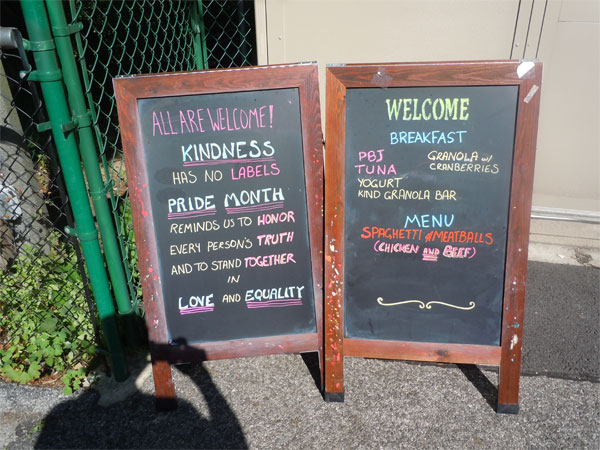 ALL ARE WELCOME!
KINDNESS
HAS NO LABELS
PRIDE MONTH
REMINDS US TO HONOR
EVERY PERSON'S TRUTH
AND TO STAND TOGETHER
IN
LOVE AND EQUALITY
WELCOME
BREAKFAST
PBJ
TUNA
YOGURT
KIND GRANOLA BAR
GRANOLA W/
CRANBERRIES
MENU
SPAGHETTI & MEATBALLS
(CHICKEN AND BEEF)